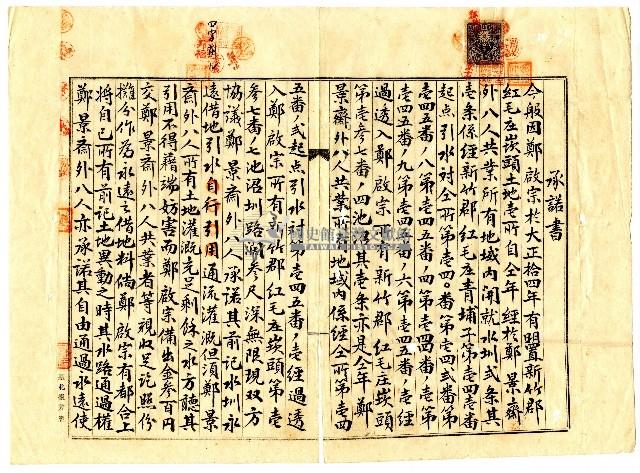 承諾書
今般因鄭啟宗於大正拾四年有開置新竹郡
紅毛庄崁頭土地壱所自仝年經於鄭景齋
外八人共業所有地域內開就水圳弍条其
壱条係經新竹郡紅毛庄青埔子第壱四壱番
起點引水討仝所第壱四〇番第壱四弍番第
壱四五番ノ八第壱四五番ノ四第壱四五番ノ壱第
壱四五番ノ九第壱四五番ノ六第壱四五番ノ壱經
過透入鄭啟宗所有新竹郡紅毛庄崁頭
第壱参七番ノ四池沼其壱条亦是仝年鄭
景齋外八人共業所有地域內係經仝所第壱四
五番ノ弍起点引水第壱四五番ノ壱經過透
入鄭啟宗所有新竹郡紅毛庄崁頭第壱
参七番ノ七池沼圳路濶参尺深無限現双方
協議鄭景齋外八人承諾其前記水圳永
遠借地引水自行引用通流灌溉但須鄭景
齋外八人所有土地灌溉充足剩餘之水方聽其
引用不得藉端妨害而鄭啟宗備出金参百円
交鄭景齋外八人共業者等視收足訖照份
攤分作為永遠之借地料倘鄭啟宗有都合上
將自己所有前記土地異動之時其水路通過權
鄭景齋外八人亦承諾其自由通過永遠使